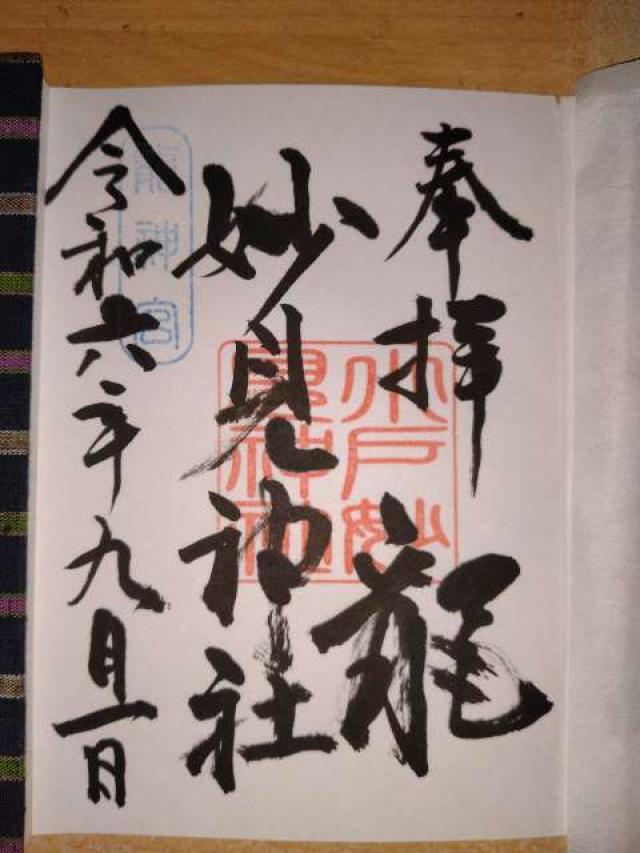 奉拝
龍
妙見神社
水戸妙
見神社
龍神宮
令和六年九月一日